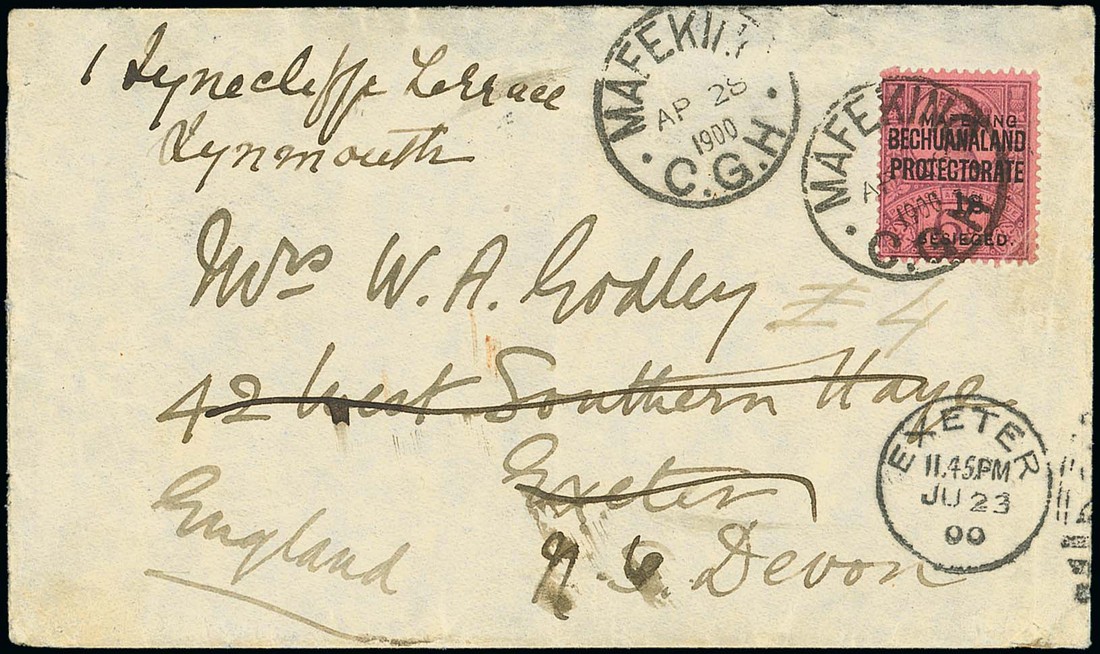 1 Lynecliffe Terrace
Lynmouth
MAFEKING
AP 28
1900
C.G.H
MAFEKING
1900
C.G.H
MAFEKING
BECHUANALAND
PROTECTORATE
BESIEGED.
Mrs W. A. Godley
42 West Southern Haye
Exeter
England
N. Devon
EXETER
11.45PM
JU 23
00